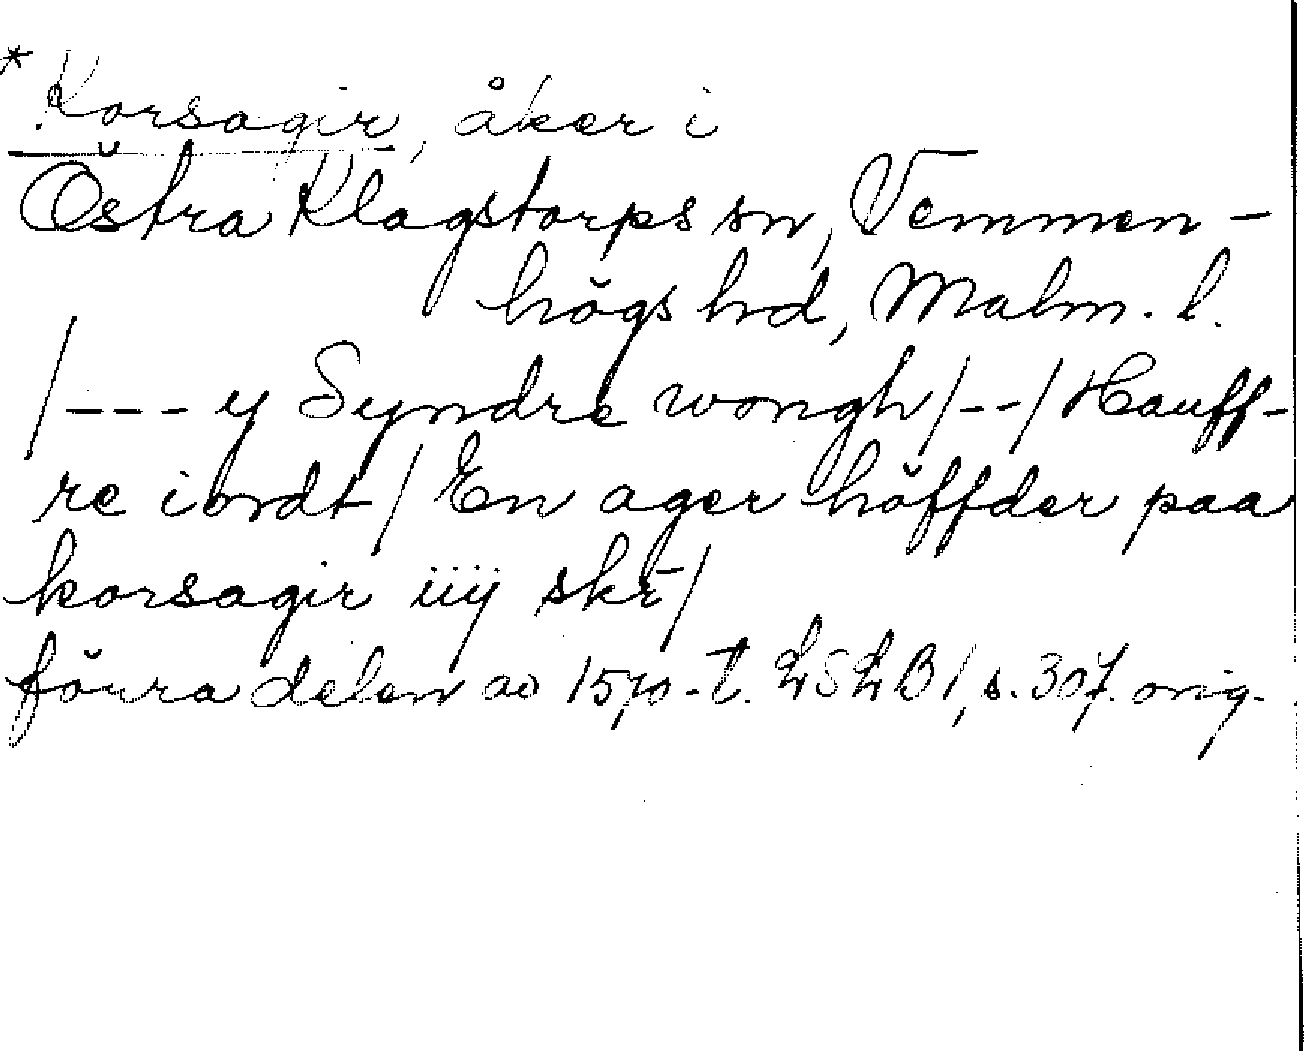 * Korsagir, åker i
Östra Klagstorps sn, Vemmen-
högs hd, Malm. l.
/--- y Syndre wongh/--/Hauff-
re iordt/ En ager höffder paa
korsagir iiij skr/
förra delen av 1570-t. LSLB1, s. 307. orig.